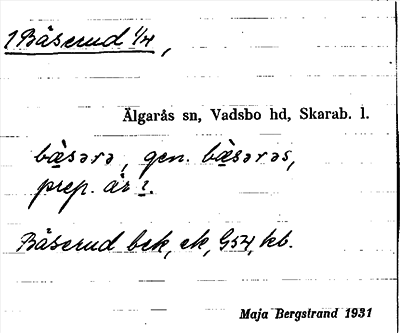 1 Båserud 1/4,
Älgarås sn, Vadsbo hd, Skarab. l.
bå̀sərə, gen. bå̀sərəs,
prep. är i.
Båserud bek, ek, G54, kb.
Maja Bergstrand 1931